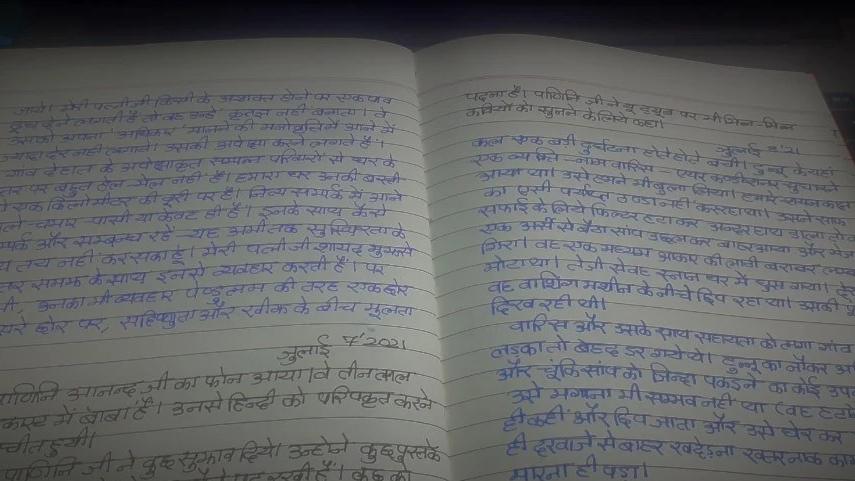 जाये। मेरी पत्नी जी किसी के अशक्त होने पर एक पाव
दूध देने लगती हैं तो वह उन्हें कृतज्ञ नहीं बनाता। वे
उसको अपना 'अधिकार' मानने की मनोवृत्ति में आने में
ज्यादा देर नहीं लगाते। उसकी अपेक्षा करने लगते हैं।
गांव देहात के अपेक्षाकृत सम्पन्न परिवारों से घर के
स्तर पर बहुत हेल मेल नहीं है। हमारा घर उनकी बस्ती
से एक किलोमीटर की दूरी पर है। नित्य सम्पर्क में आने
चमार पासी या केवट ही हैं। इनके साथ कैसे
और सम्बन्ध रहें - यह अभी तक सुस्थिरता के
तय नहीं कर सका हूं। मेरी पत्नी जी शायद मुझसे
समझ के साथ इनसे व्यवहार करती हैं। पर
उनका भी व्यवहार पेण्डुलम की तरह एक छोर
दूसरे छोर पर, सहिष्णुता और खीझ के बीच झूलता
जुलाई 7' 2021
पाणिनि आनन्द जी का फोन आया। वे तीन साल
में बाबा हैं। उनसे हिन्दी को परिष्कृत करने
हुयी।
पाणिनि जी ने कुछ सुझाव दिये। उन्होने कुछ पुस्तकें
रखी हैं। कुछ को
पढ़ना है। पाणिनि जी ने यू ट्यूब पर भी भिन्न-भिन्न
कवियों को सुनने के लिये कहा।
जुलाई 8' 21
कल एक बड़ी दुर्घटना होते होते बची। टुन्नू के यहां
एक व्यक्ति - नाम वारिस - एयर कण्डीशनर सुधारने
आया था। उसे हमने भी बुला लिया। हमारे शयनकक्ष
का एसी पर्याप्त ठण्डा नहीं कर रहा था। उसने साफ
सफाई के लिये फिल्टर हटा कर अन्दर हाथ डाला तो
एक अर्से से बैठा सांप उछल कर बाहर आया और मेज
गिरा। वह एक मध्यम आकार की लाठी बराबर लम्बा
मोटा था। तेजी से वह स्नान घर में घुस गया।
वह वाशिंग मशीन के नीचे छिप रहा था। उसकी पूंछ
दिख रही थी।
वारिस और उसके साथ सहायता को लगा गांव
लड़का तो बेहद डर गये थे। टुन्नू का नौकर
और चूंकि सांप को जिन्दा पकड़ने का कोई उपाय
उसे भगाना भी सम्भव नहीं था (वह
ही कहीं और छिप जाता और उसे घेर कर
ही दरवाजे से बाहर खदेड़ना खतरनाक काम
मारना ही पड़ा।